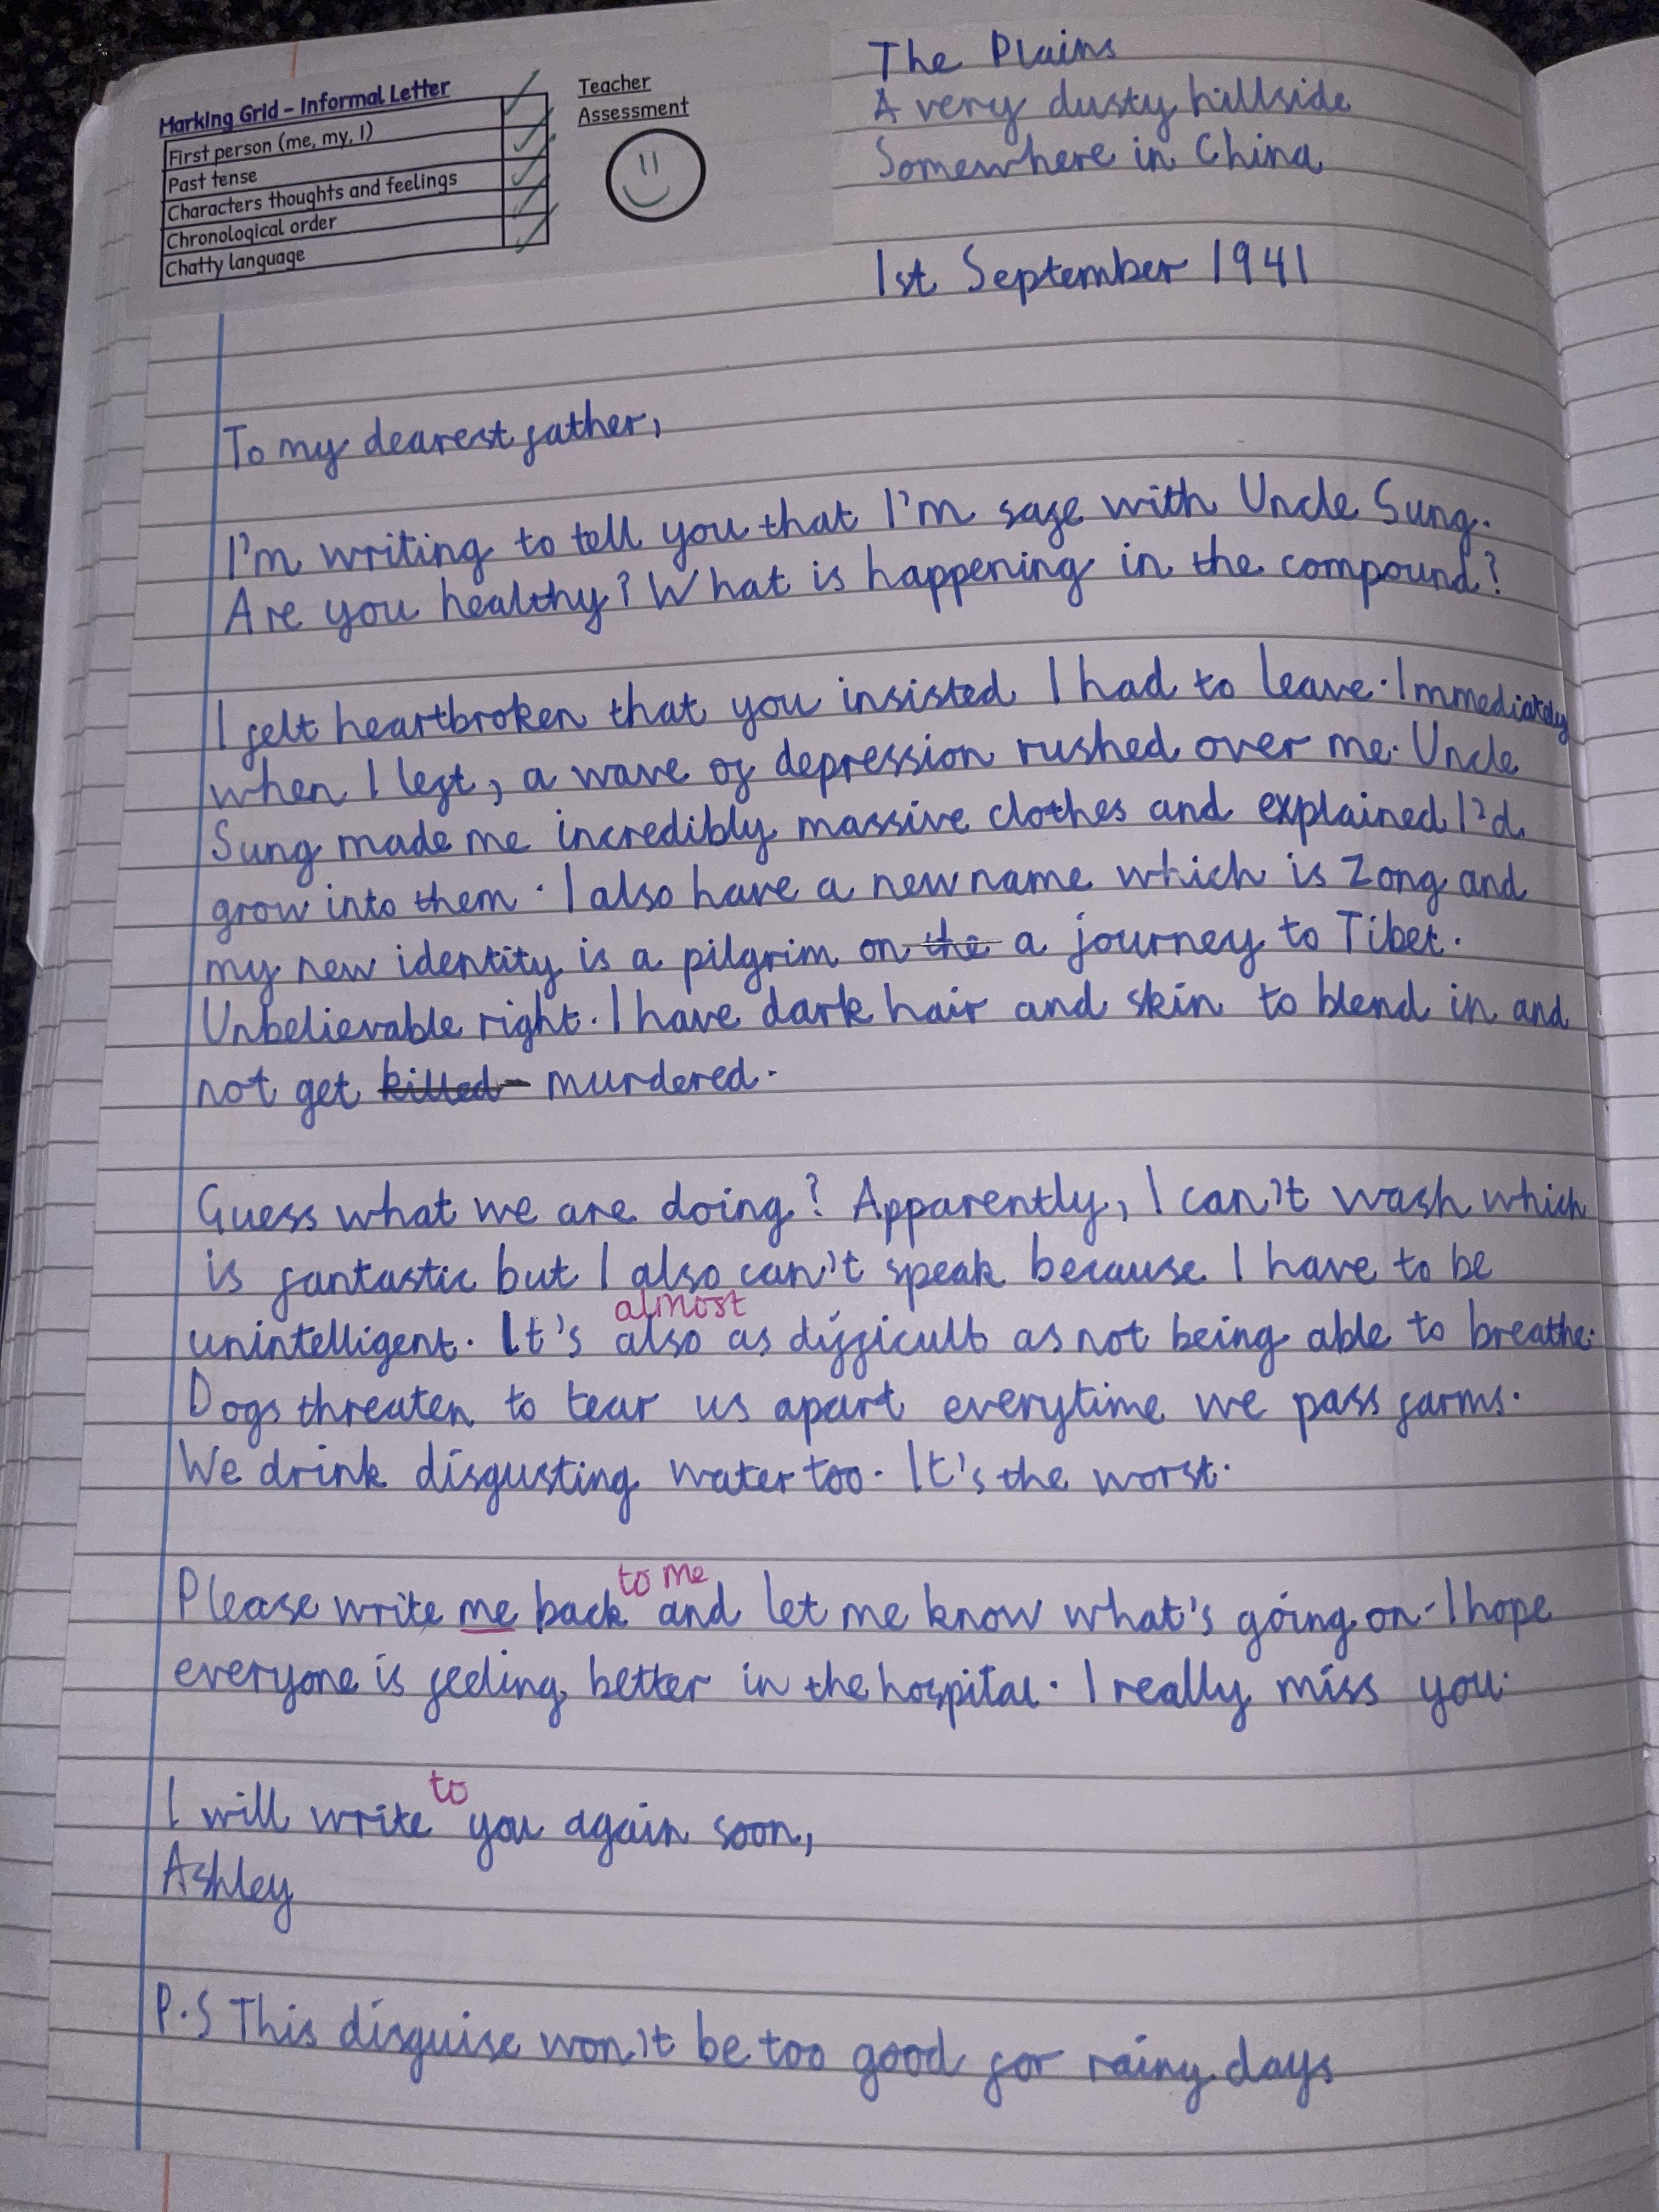 Marking Grid – Informal Letter
First person (me, my, I)
Past tense
Characters thoughts and feelings
Chronological order
Chatty language
Teacher
Assessment
The Plains
A very dusty hillside
Somewhere in China
1st September 1941
To my dearest father,
I'm writing to tell you that I'm safe with Uncle Sung.
Are you healthy? What is happening in the compound?
I felt heartbroken that you insisted I had to leave. Immediately
when I left, a wave of depression rushed over me. Uncle
Sung made me incredibly massive clothes and explained I'd
grow into them. I also have a new name which is Zong and
my new identity is a pilgrim on the a journey to Tibet.
Unbelievable right. I have dark hair and skin to blend in and
not get killed murdered.
Guess what we are doing? Apparently, I can't wash which
is fantastic but I also can't speak because I have to be
almost
unintelligent. It's also as difficult as not being able to breathe.
Dogs threaten to tear us apart everytime we pass farms.
We drink disgusting water too. It's the worst.
to me
Please write me back and let me know what's going on. I hope
everyone is feeling better in the hospital. I really miss you.
to
I will write you again soon,
Ashley
P.S This disguise won't be too good for rainy days